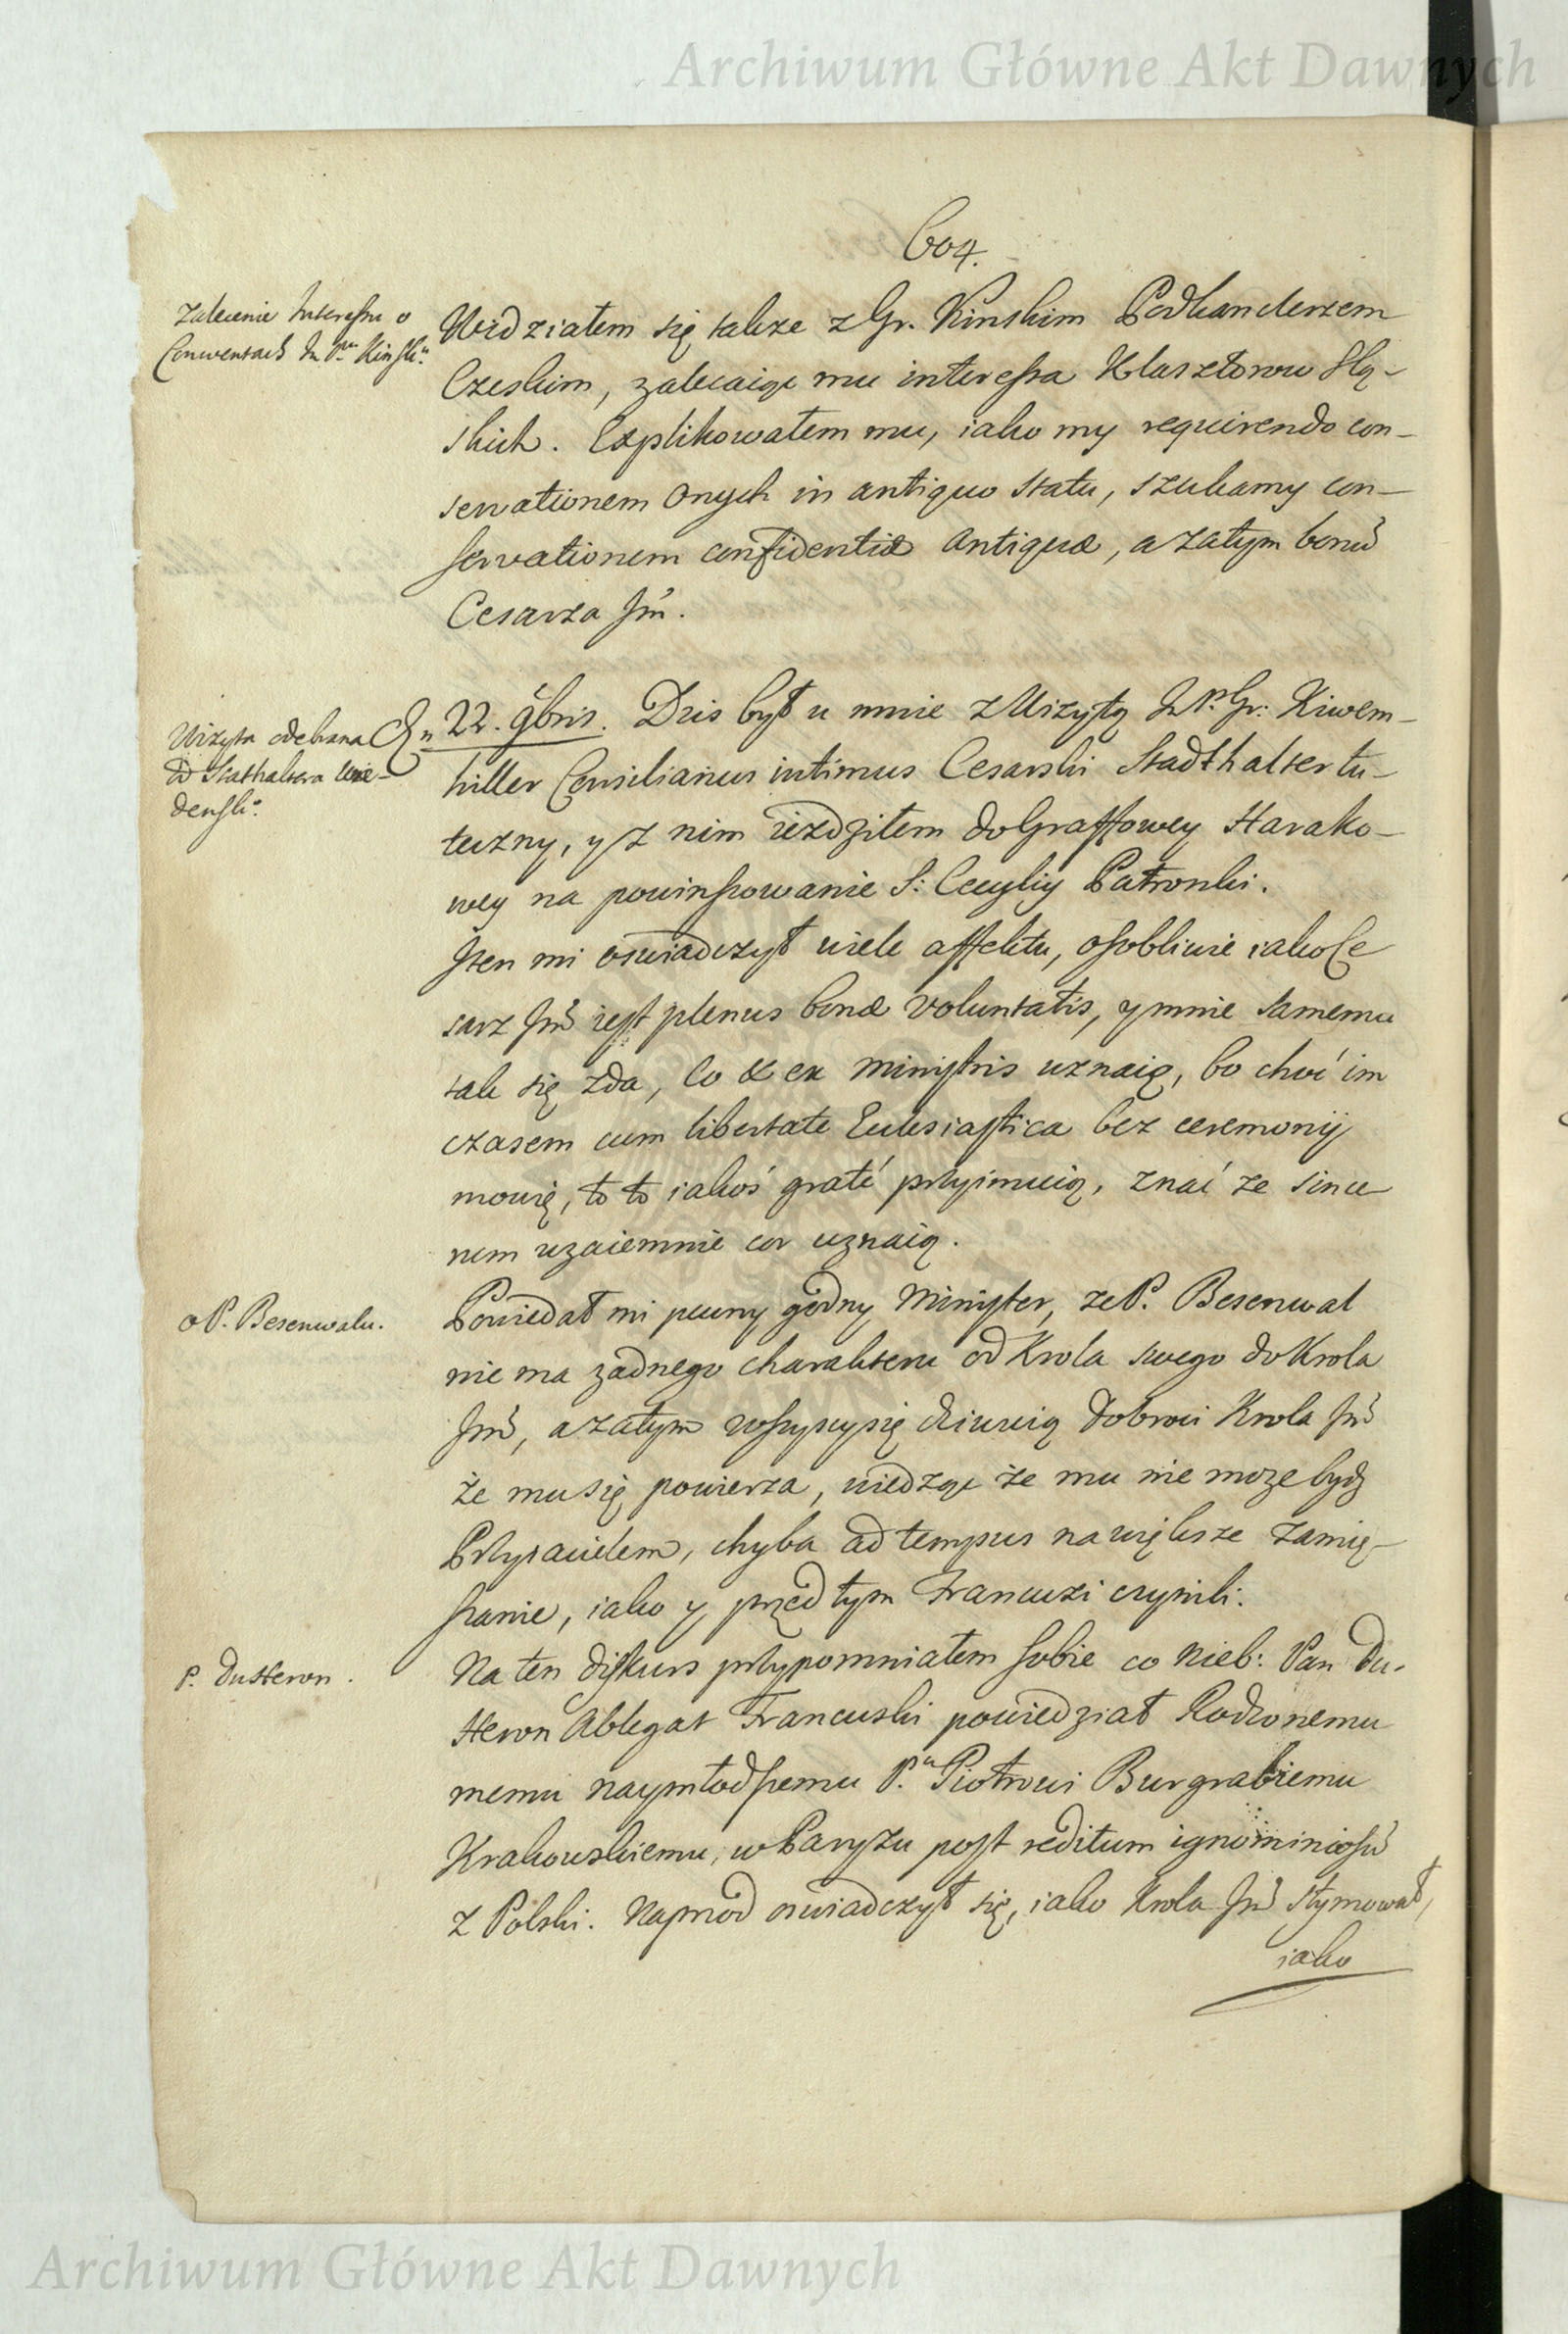 Archiwum Główne Akt Dawnych
604.
Zalecenie Interessu o
Conventach Jn Pnu Kinsk:
Widziałem się takze z Gr. Kinskim Podkanclerzem
Czeskim, zalecaiąc mu interessa Klasztorow Slą-
skich. Explikowałem mu, iako my requirendo con-
servationem onych in antiquo statu, szukamy con-
servationem confidentiæ antiquæ, a zatym bonū
Cesarza Jm̃.
Wizyta odebrana
od Stathaltera Wie-
densk:
22. 9bris. Dzis był u mnie z Wizytą Jn P. Gr: Kiwem-
hiller Consiliarius intimus Cesarski Stadthalter tu-
teczny, y z nim iezdziłem do Graffowey Harako-
wey na powinszowanie S: Cecyliy Patronki.
Jten mi oswiadczył wiele affektu, osobliwie iako Ce
sarz Jm̃ iest plenus bonæ voluntatis, y mnie samemu
tak się zda, co & ex ministris uznaię, bo choć im
czasem cum libertate Ecclesiastica bez ceremonij
mowię, to to iakoś gratè przyimuią, znać ze since
rum wzaiemnie cor uznaią.
o P. Besenwalu.
Powiedał mi pewny godny Minister, ze P. Besenwal
nie ma zadnego charakteru od Krola swego do Krola
Jm̃, a zatym wszyscy się dziwuią dobroci Krola Jm̃
że mu się powierza, wiedząc że mu nie moze bydz
Przyiacielem, chyba ad tempus na większe zamię-
szanie, iako y przed tym Francuzi czynili.
P. du Heron.
Na ten diskurs przypomniałem sobie co nieb: Pan du-
Heron Ablegat Francuski powiedział Rodzonemu
memu naymłodszemu P.u Piotrowi Burgrabiemu
Krakowskiemu, w Paryzu post reditum ignominiosū
z Polski. Naprzod oswiadczył się, iako Krola Jm̃ stymował,
iako
Archiwum Główne Akt Dawnych